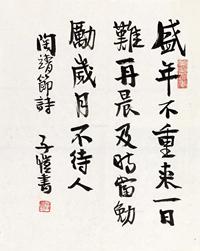 盛年不重来一日
難再晨及時當勉
勵歲月不待人
陶靖節詩
子愷書